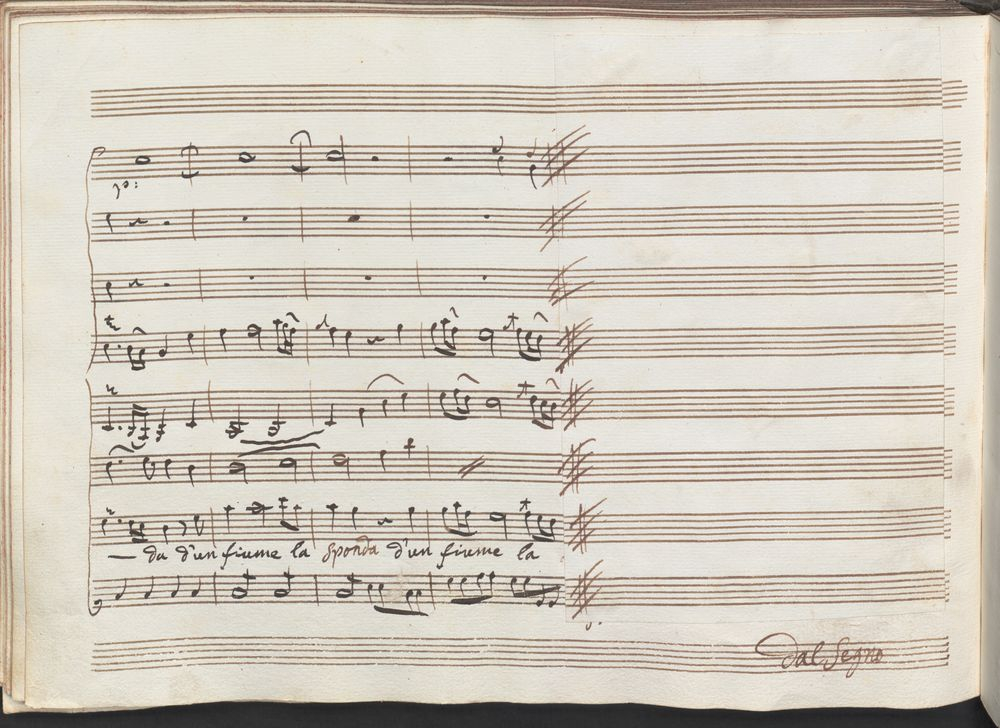 p:
— da d'un fiume la sponda d'un fiume la
Dal Segno